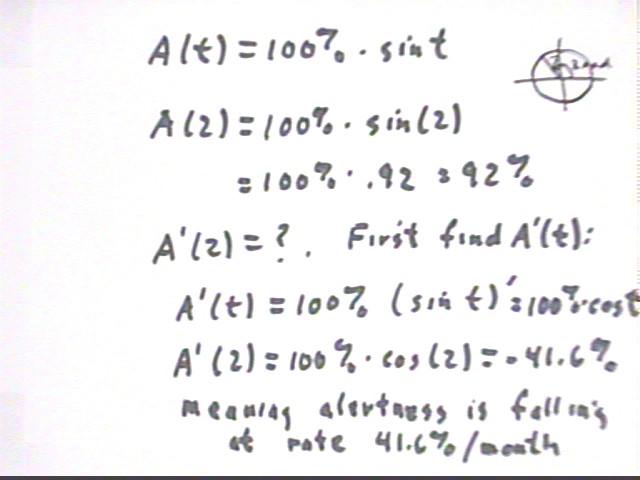 A(t) = 100% · sin t
2 rad
A(2) = 100% · sin(2)
= 100% · .92 = 92%
A'(2) = ? . First find A'(t):
A'(t) = 100% (sin t)' = 100% · cos t
A'(2) = 100% · cos(2) = -41.6%
meaning alertness is falling
at rate 41.6%/month